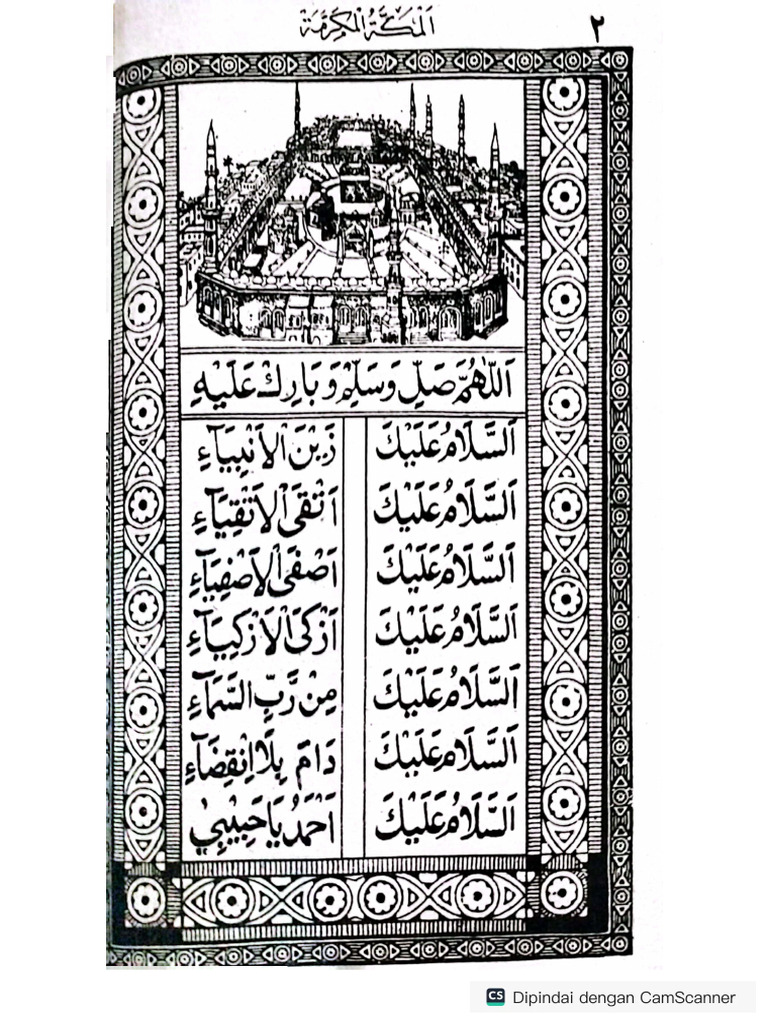 اَلْمَكَّةُ الْمُكَرَّمَةْ
٢
اَللّٰهُمَّ صَلِّ وَسَلِّمْ وَبَارِكْ عَلَيْهِ
اَلسَّلَامُ عَلَيْكَ زَيْنَ الْاَنْبِيَآءِ
اَلسَّلَامُ عَلَيْكَ اَتْقَى الْاَتْقِيَآءِ
اَلسَّلَامُ عَلَيْكَ اَصْفَى الْاَصْفِيَآءِ
اَلسَّلَامُ عَلَيْكَ اَزْكَى الْاَزْكِيَآءِ
اَلسَّلَامُ عَلَيْكَ مِنْ رَّبِّ السَّمَآءِ
اَلسَّلَامُ عَلَيْكَ دَامَ بِلَا انْقِضَآءِ
اَلسَّلَامُ عَلَيْكَ اَحْمَدُ يَا حَبِيْبِيْ
CS Dipindai dengan CamScanner